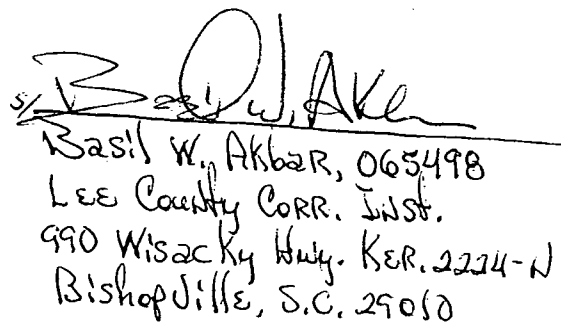 s/ Basil W. Akbar
Basil W. Akbar, 065498
Lee County Corr. Inst.
990 Wisacky Hwy. KER. 2224-N
Bishopville, S.C. 29010